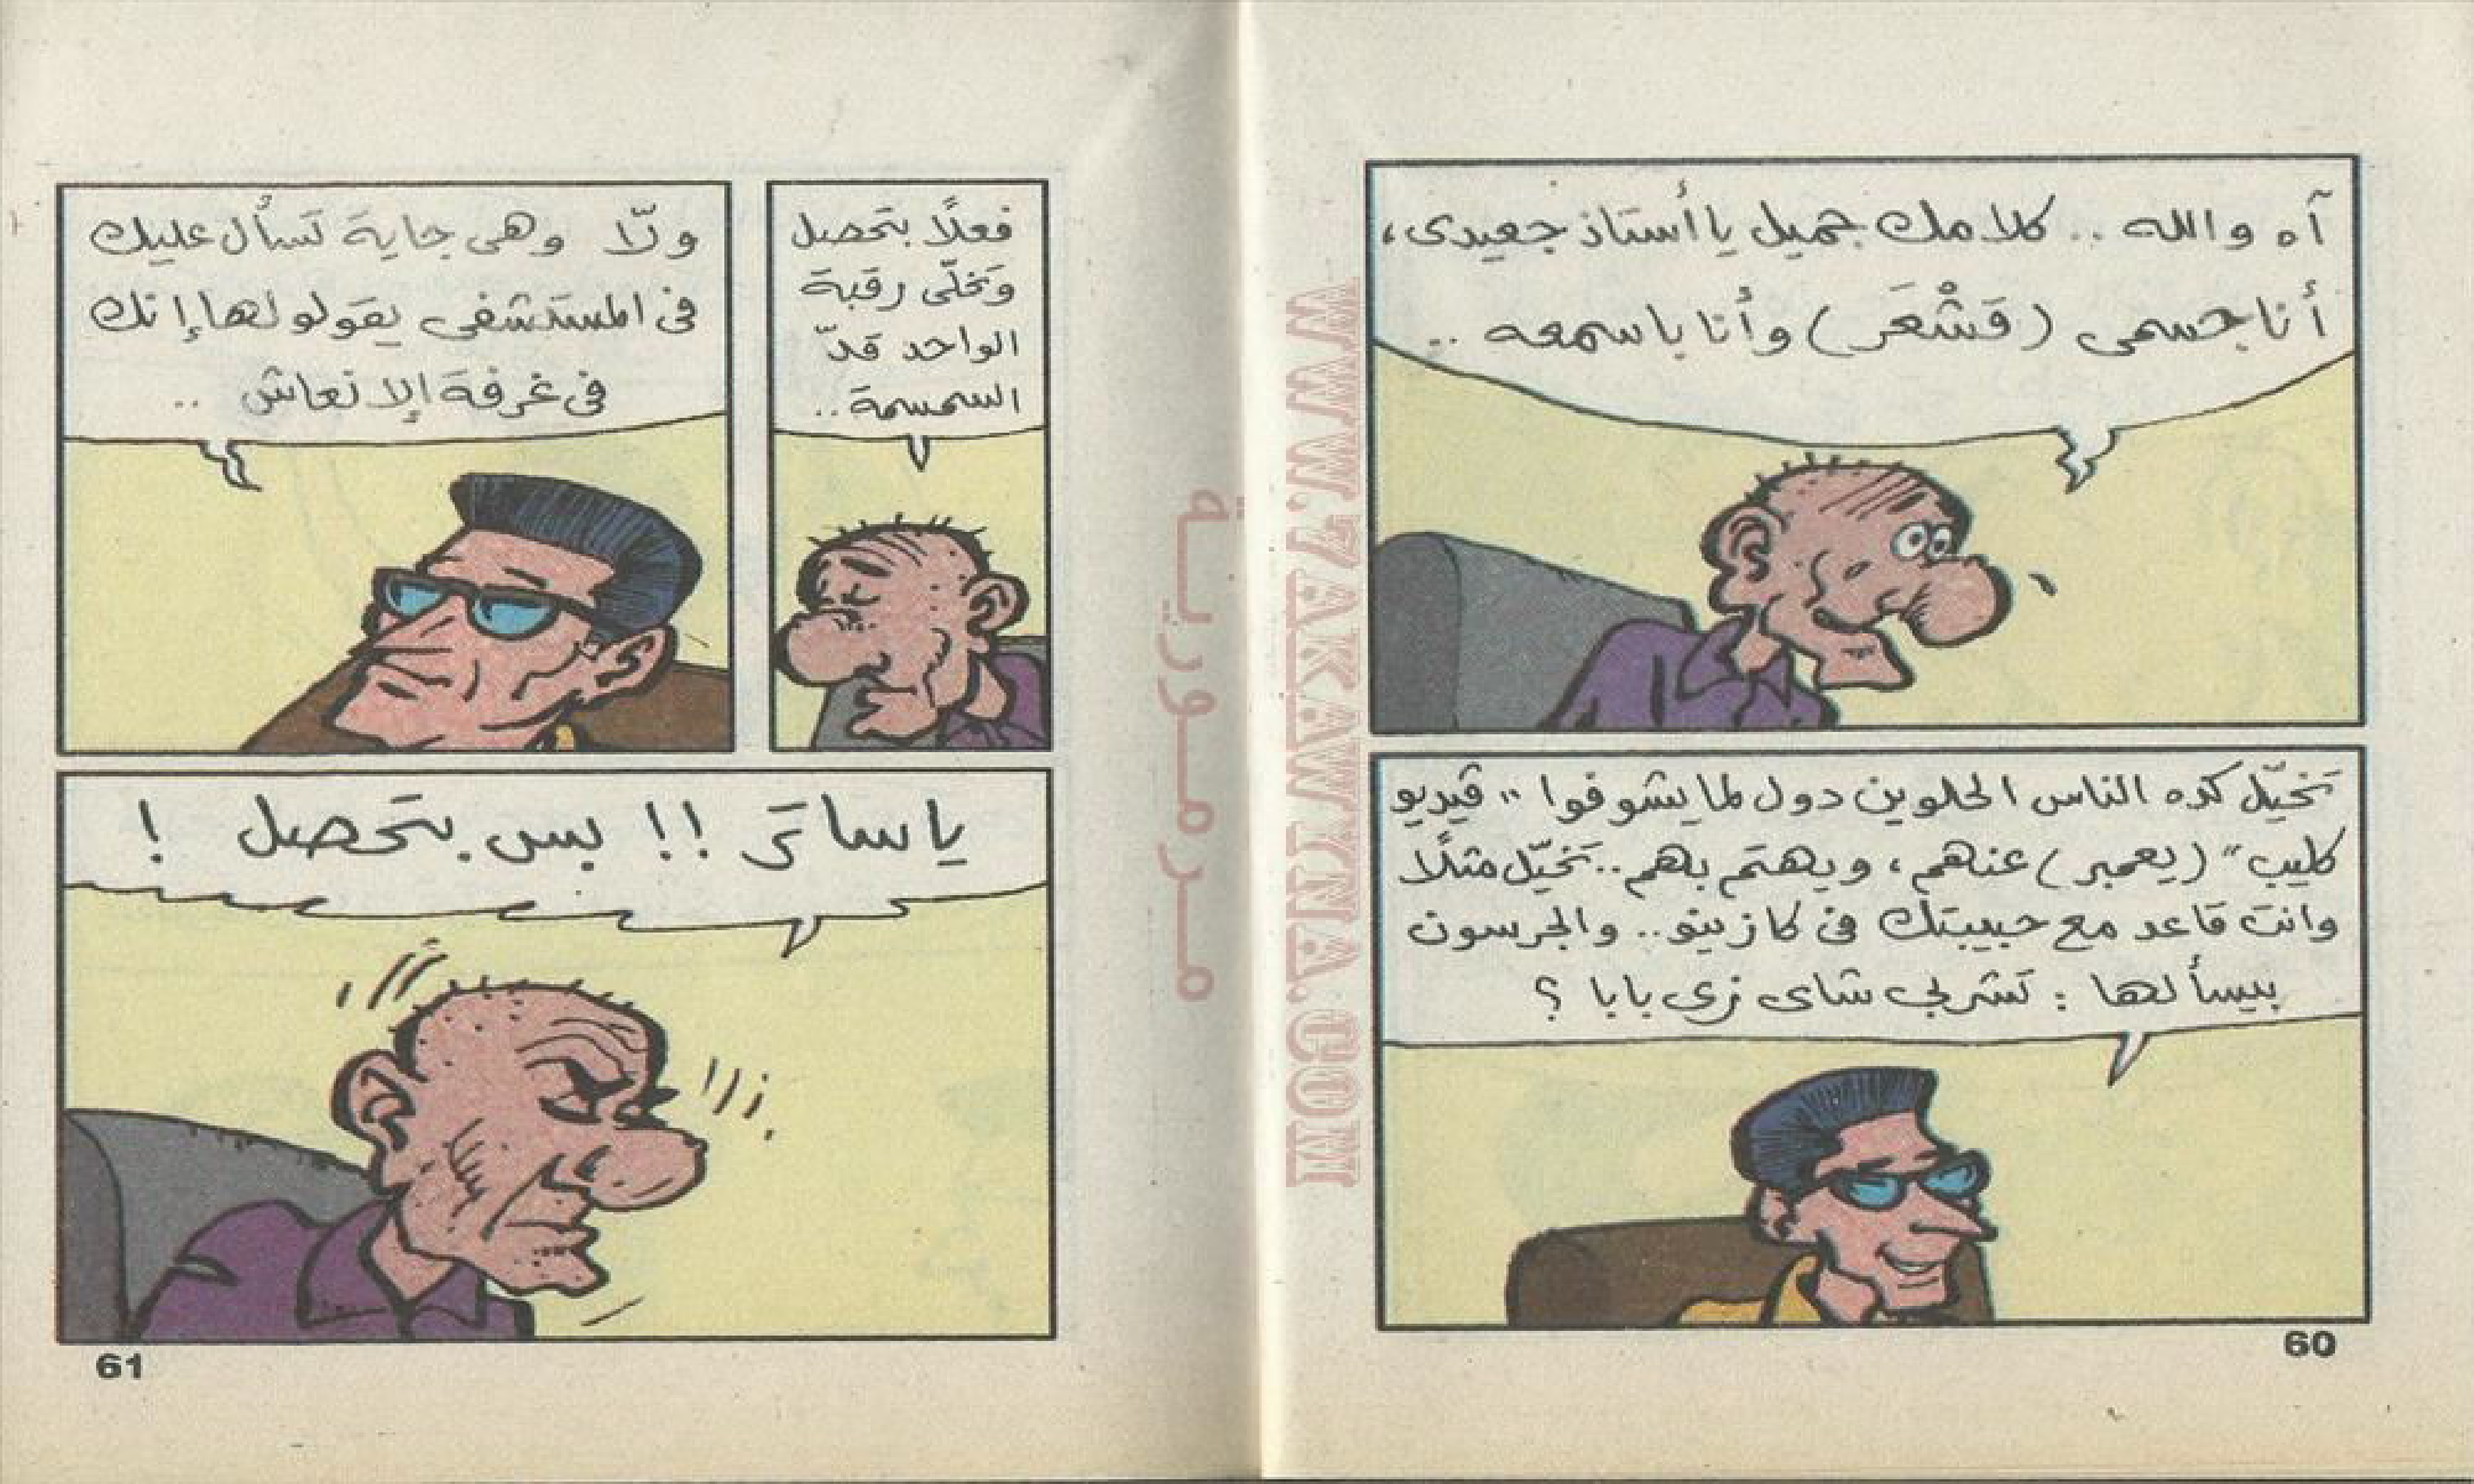 آه والله .. كلامك جميل يا أستاذ جعيدى،
أنا جسمى (قَشْعَر) وأنا باسمعه ..
تخيّل كده الناس الحلوين دول لما يشوفوا "ڤيديو
كليب" (يعمبر) عنهم، ويهتم بهم .. تخيّل مثلًا
وانت قاعد مع حبيبتك فى كازينو .. والجرسون
بيسألها : تشربى شاى زى بابا ؟
60
فعلًا بتحصل
وتخلّى رقبة
الواحد قدّ
السمسمة ..
ولّا وهى جاية تسأل عليك
فى المستشفى يقولولها إنك
فى غرفة الإنعاش ..
يا ساتر !! بس بتحصل !
61
مرمورية
WWW.7AKAWINA.COM